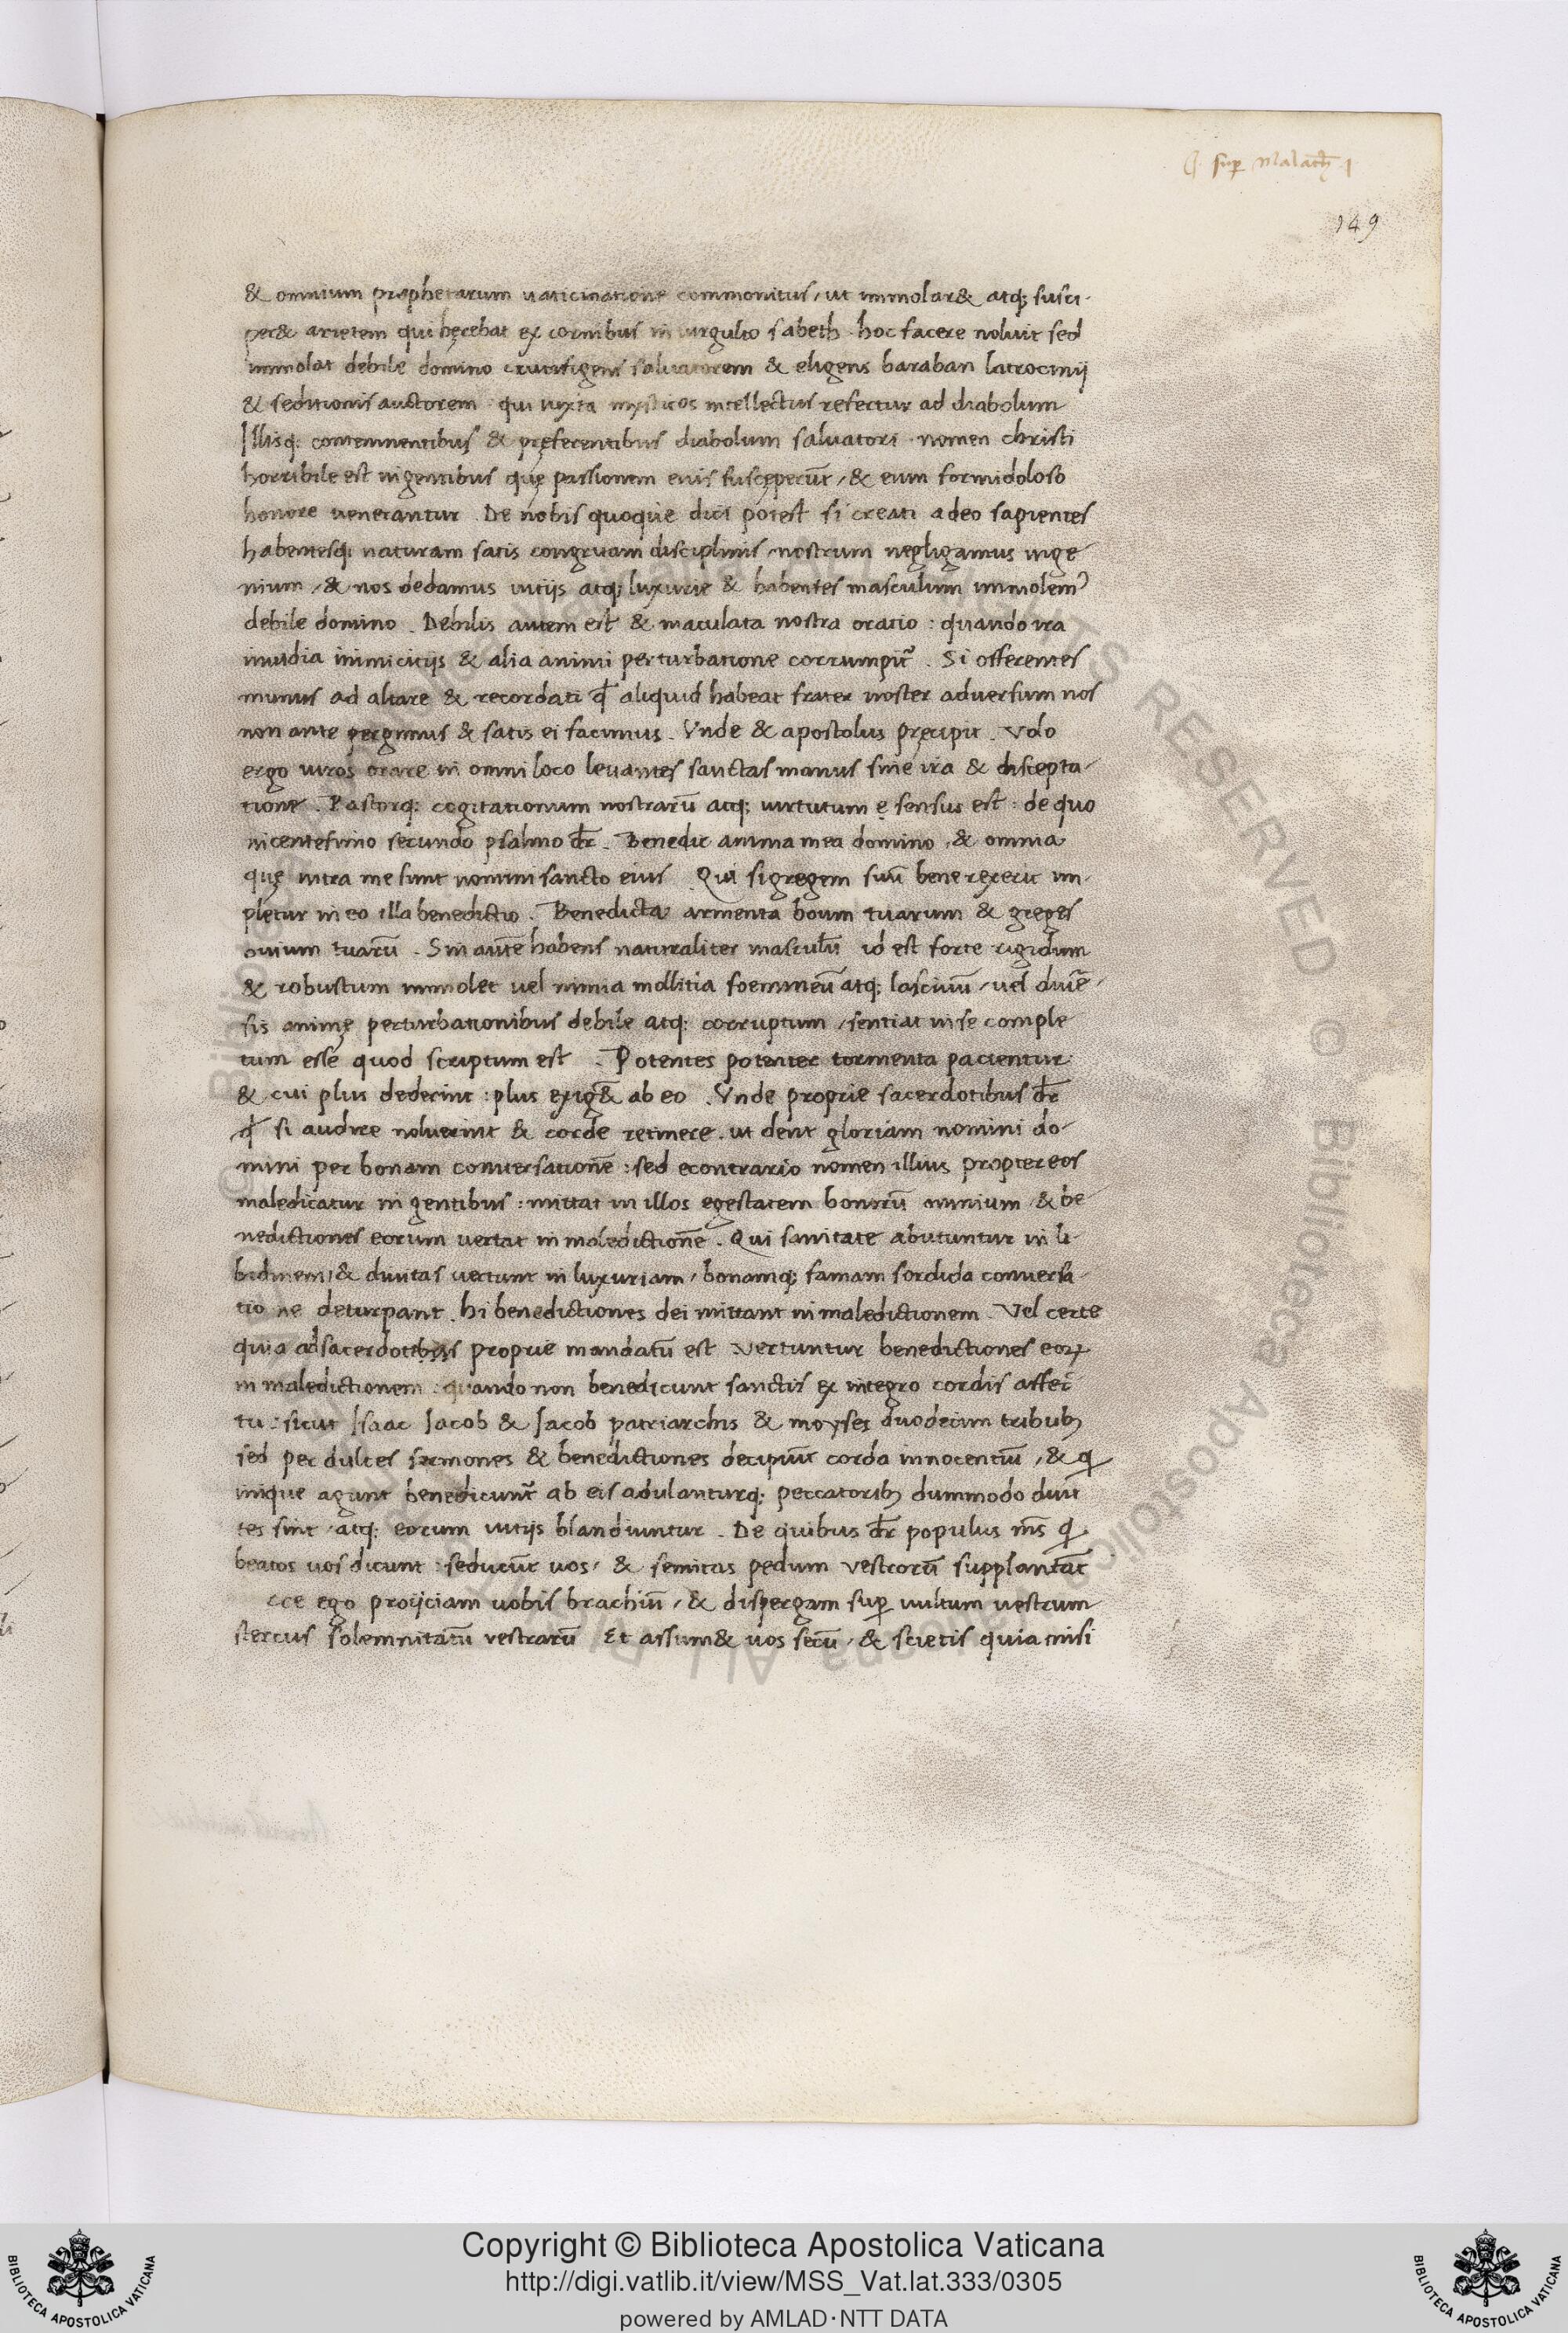 Q. sup Malach. I
149
& omnium prophetarum uaticinatione commonitus, ut immolar& atq; susci-
per& arietem qui hęrebat ex cornibus in uirgulto sabeth. hoc facere noluit sed
immolat debile domino crucifigens saluatorem & eligens baraban latrocinij
& seditionis auctorem. qui iuxta mysticos intellectus refertur ad diabolum
Illisq; contemnentibus & pręferentibus diabolum saluatori. nomen christi
horribile est in gentibus quę passionem eius suscęperūt, & eum formidoloso
honore uenerantur. De nobis quoque dici potest si creati adeo sapientes
habentesq; naturam satis congruam disciplinis, nostrum negligamus inge-
nium, & nos dedamus uitijs atq; luxurie & habentes masculum immolem᾽
debile domino. Debilis autem est & maculata nostra oratio: quando ira
inuidia inimicitijs & alia animi perturbatione corrumpit᷑. Si offerentes
munus ad altare & recordati ꝙ aliquid habeat frater noster aduersum nos
non ante pergimus & satis ei facimus. Vnde & apostolus pręcipit. Volo
ergo uiros orare in omni loco leuantes sanctas manus sine ira & discepta-
tione. Pastorq; cogitationum nostrarū atq; uirtutum ę sensus est: de quo
in centesimo secundo psalmo dr̄. Benedic anima mea domino, & omnia
quę intra me sunt nomini sancto eius. Qui si gregem suū bene rexerit im-
pletur in eo illa benedictio. Benedicta armenta boum tuarum & greges
ouium tuarū. Sin autē habens naturaliter masculū id est forte rigidum
& robustum immolet uel nimia mollitia foemineū atq; lasciuū, uel diuer-
sis animę perturbationibus debile atq; corruptum, sentiat in se comple-
tum esse quod scriptum est. Potentes potenter tormenta pacientur
& cui plus dederint: plus exig& ab eo. Vnde proprie sacerdotibus dr̄
ꝙ si audire noluerint & corde retinere. ut dent gloriam nomini do-
mini per bonam conuersationē: sed econtrario nomen illius propter eos
maledicatur in gentibus: mittat in illos egestatem bonorū omnium & be-
nedictiones eorum uertat in maledictionē. Qui sanitate abutuntur in li-
bidinem, & diuitas uertunt in luxuriam, bonamq; famam sordida conuersa-
tio ne deturpant. hi benedictiones dei mittant in maledictionem. Vel certe
quia ad sacerdotibus proprie mandatū est uertuntur benedictiones eoꝝ
in maledictionem: quando non benedicunt sanctis ex integro cordis affec-
tu: sicut Isaac Iacob & Iacob patriarchis & moyses duodecim tribubꝫ
sed per dulces sermones & benedictiones decipiūt corda innocentiū, & q
inique agunt benedicunt᷑ ab eis adulanturq; peccatoribꝫ dummodo diui
tes sint, atq; eorum uitijs blandiuntur. De quibus dr̄ populus m̄s q
beatos uos dicunt: seducūt uos, & semitas pedum vestrorū supplantāt
cce ego proijciam uobis brachiū, & dispergam sup uultum uestrum
stercus solemnitatū vestrarū Et assum& uos secū, & scietis quia misi
Copyright © Biblioteca Apostolica Vaticana
http://digi.vatlib.it/view/MSS_Vat.lat.333/0305
powered by AMLAD·NTT DATA
BIBLIOTECA APOSTOLICA VATICANA
BIBLIOTECA APOSTOLICA VATICANA